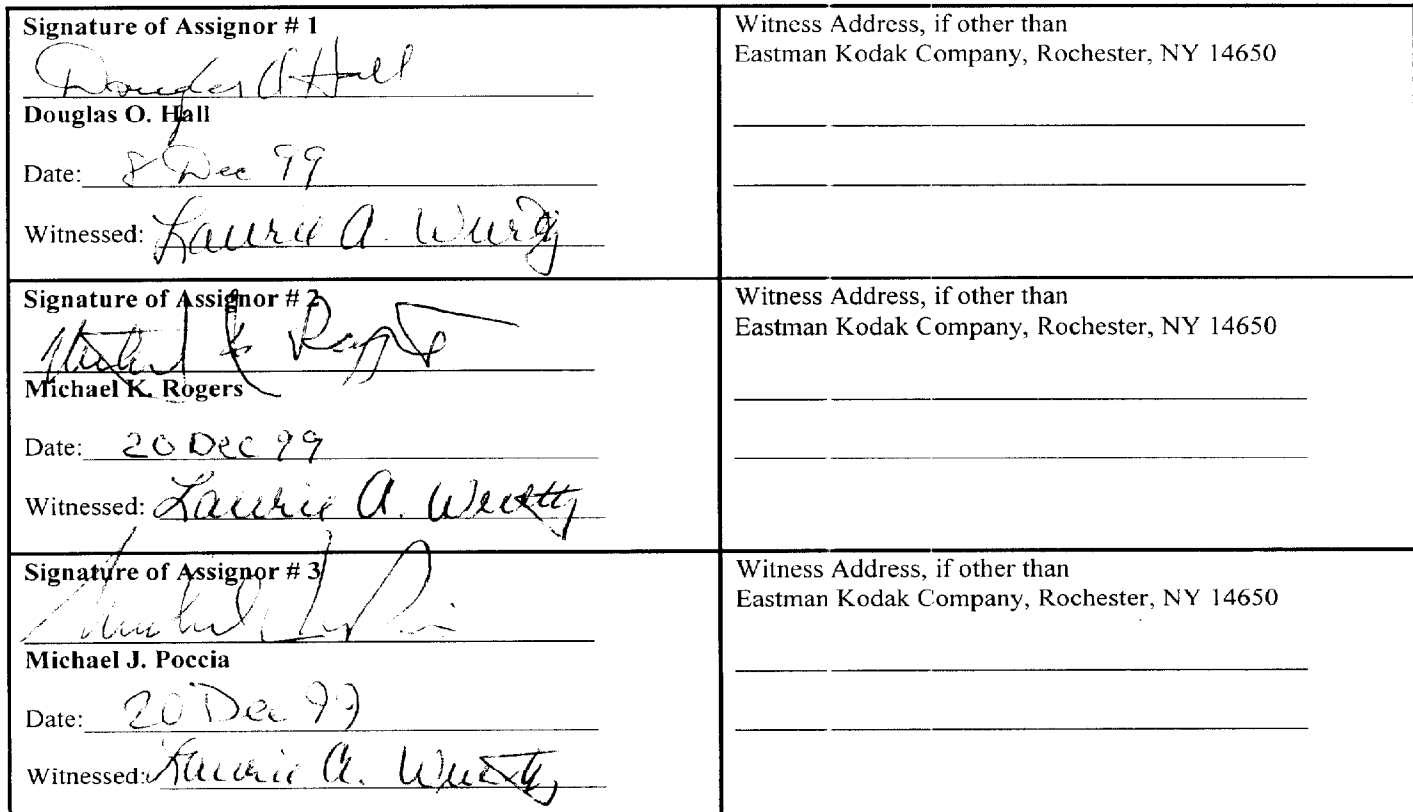 Signature of Assignor # 1
Douglas O Hall
Douglas O. Hall
Date: 8 Dec 99
Witnessed: Laurie A.
Witness Address, if other than
Eastman Kodak Company, Rochester, NY 14650
Signature of Assignor # 2
Michael K Rogers
Michael K. Rogers
Date: 20 Dec 99
Witnessed: Laurie A.
Witness Address, if other than
Eastman Kodak Company, Rochester, NY 14650
Signature of Assignor # 3
Michael J. Poccia
Date: 20 Dec 99
Witnessed: Laurie A.
Witness Address, if other than
Eastman Kodak Company, Rochester, NY 14650